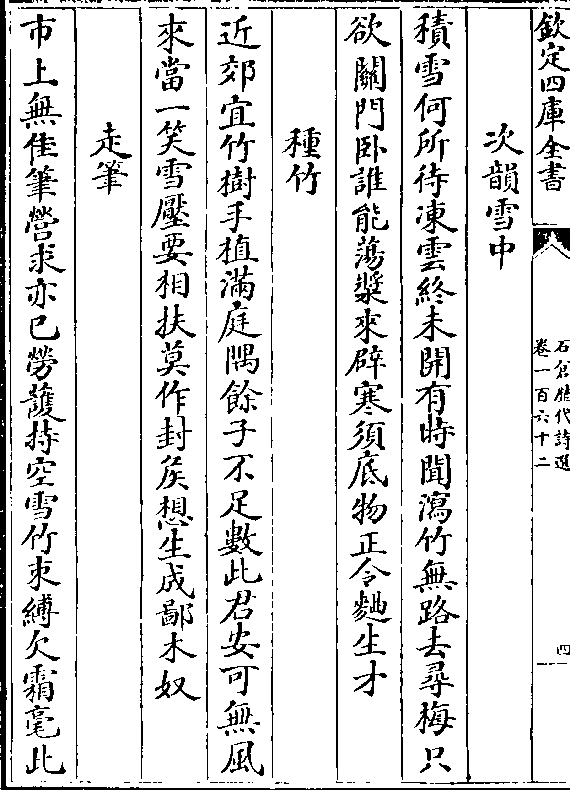 欽定四庫全書
石倉歴代詩選
卷一百六十二
四
次韻雪中
積雪何所待凍雲終未開有時聞瀉竹無路去尋梅只
欲關門卧誰能蕩槳來辟寒須底物正令麴生才
種竹
近郊宜竹樹手植滿庭隅餘子不足數此君安可無風
來當一笑雪壓要相扶莫作封侯想生成鄙木奴
走筆
市上無佳筆營求亦已勞䕶持空雪竹束縛欠霜毫此